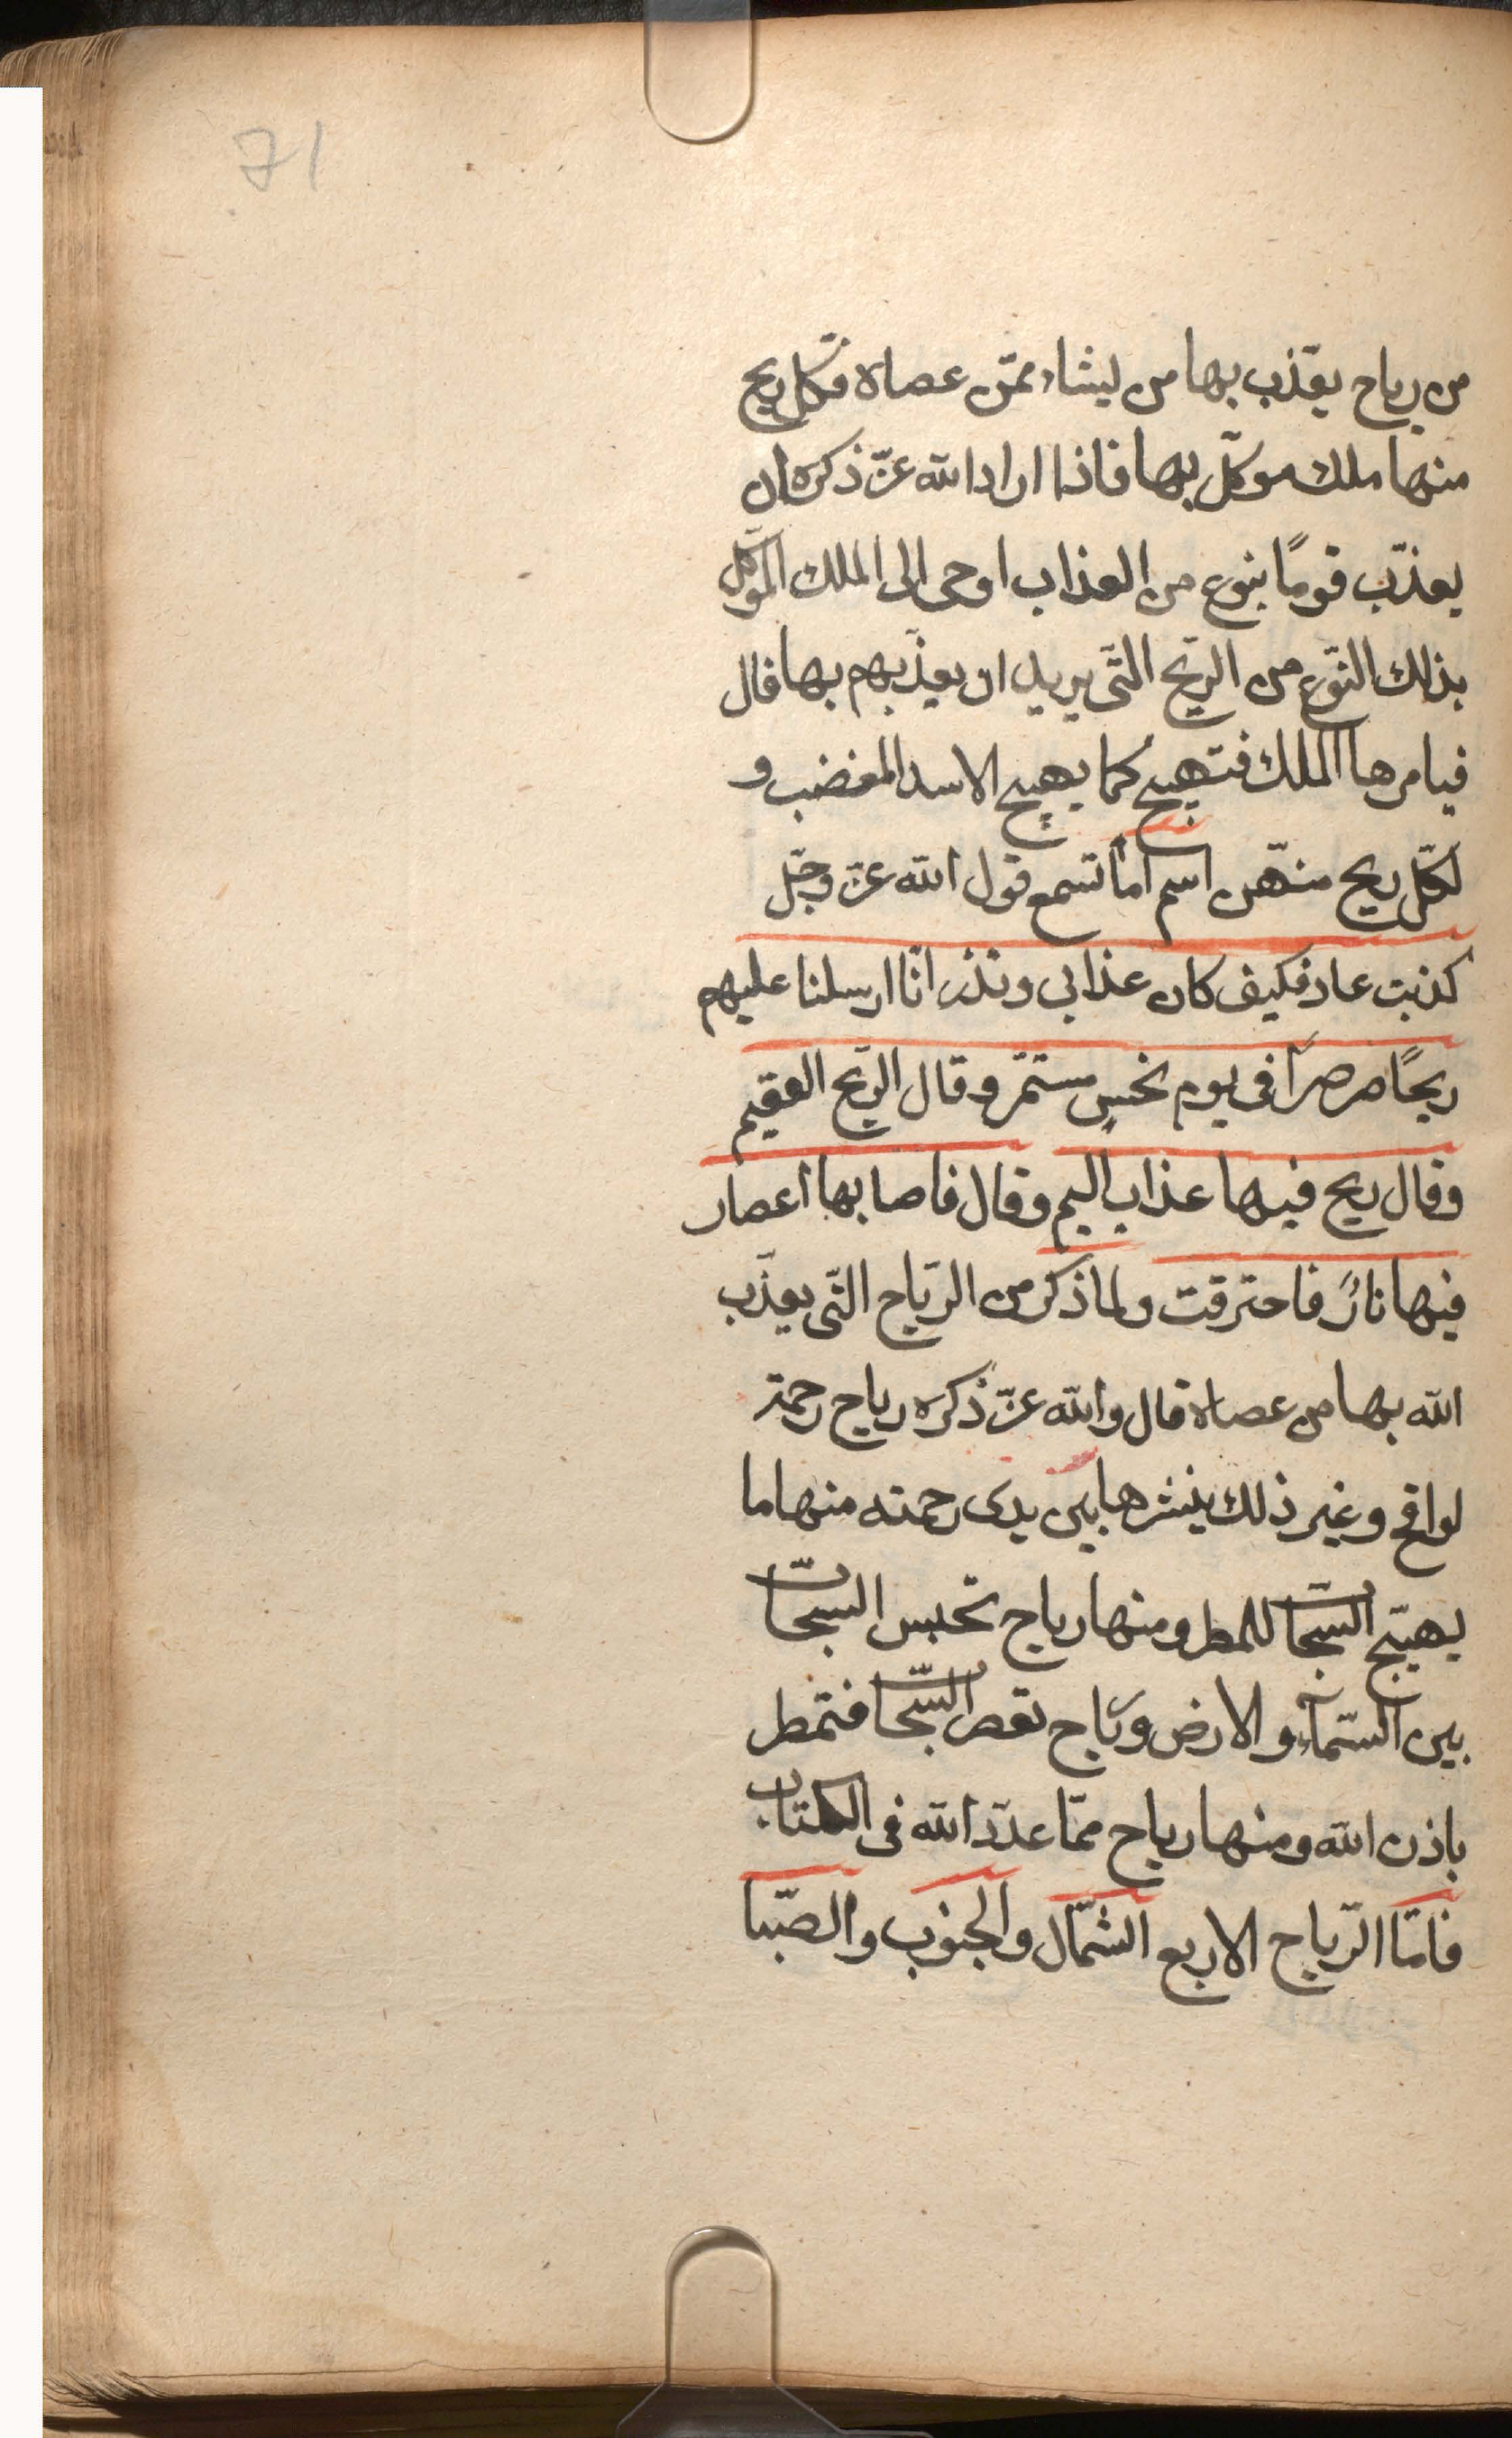 71
من رياح يعذّب بها من ليشاء ممّن عصاه فكل ريح
منها ملك موكّل بها فاذا اراد الله عزّ ذكره ان
يعذّب قومًا بنوع من العذاب اوحى الى الملك الموكّل
بذلك النّوع من الرّيح التّى يريد ان يعذّبهم بها قال
فيامرها الملك فتهيج كما يهيج الاسد المغضب و
لكلّ ريح منهّن اسم اما تسمع قول الله عزّ وجّل
كذبت عاد فكيف كان عذابى ونذر انّا ارسلنا عليهم
ريحًا صرصرًا فى يوم نحسٍ مستمّر وقال الرّيح العقيم
وقال ريح فيها عذاب اليم وقال فاصابها اعصار
فيها نارٌ فاحترقت ولما ذكر من الرّياح التّى يعذّب
الله بها من عصاه قال والله عزّ ذكره رياح رحمة
لواقح وغير ذلك ينشرها بين يدى رحمته منها ما
يهيّج السّحاب للمطر ومنها رياح تحبس السّحاب
بين السّماء والارض ورياح تعصر السّحاب فتمطر
باذن الله ومنها رياح ممّا عدّد الله فى الكتاب
فامّا الرّياح الاربع الشّمال والجنوب والصّبا